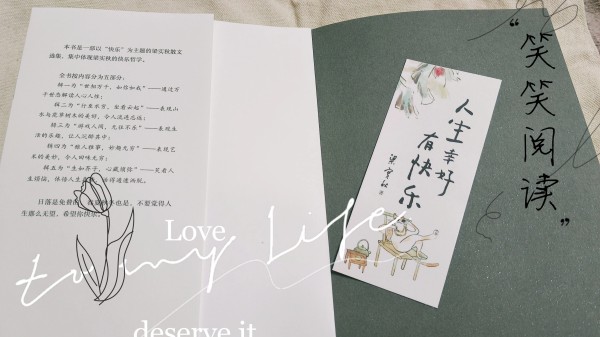 本书是一部以“快乐”为主题的梁实秋散文
选集，集中体现梁实秋的快乐哲学。
全书按内容分为五部分：
辑一为
——通过万
辑二为“行至水穷，坐看云起”——表现山
水与花草树木的美好，令人流连忘返；
辑三为“游戏人间，无往不乐”——表现生
活的乐趣，让人沉醉其中；
辑四为“雅人雅事，妙趣无穷”——表现艺
术的美妙，令人回味无穷；
辑五为“生如芥子，心藏须弥”——
日落是免费的，
也是，不要觉得人
生那么无望，希望你快乐。
人生幸好
有快乐
梁实秋
“笑笑阅读”
Love
to my Life
deserve it